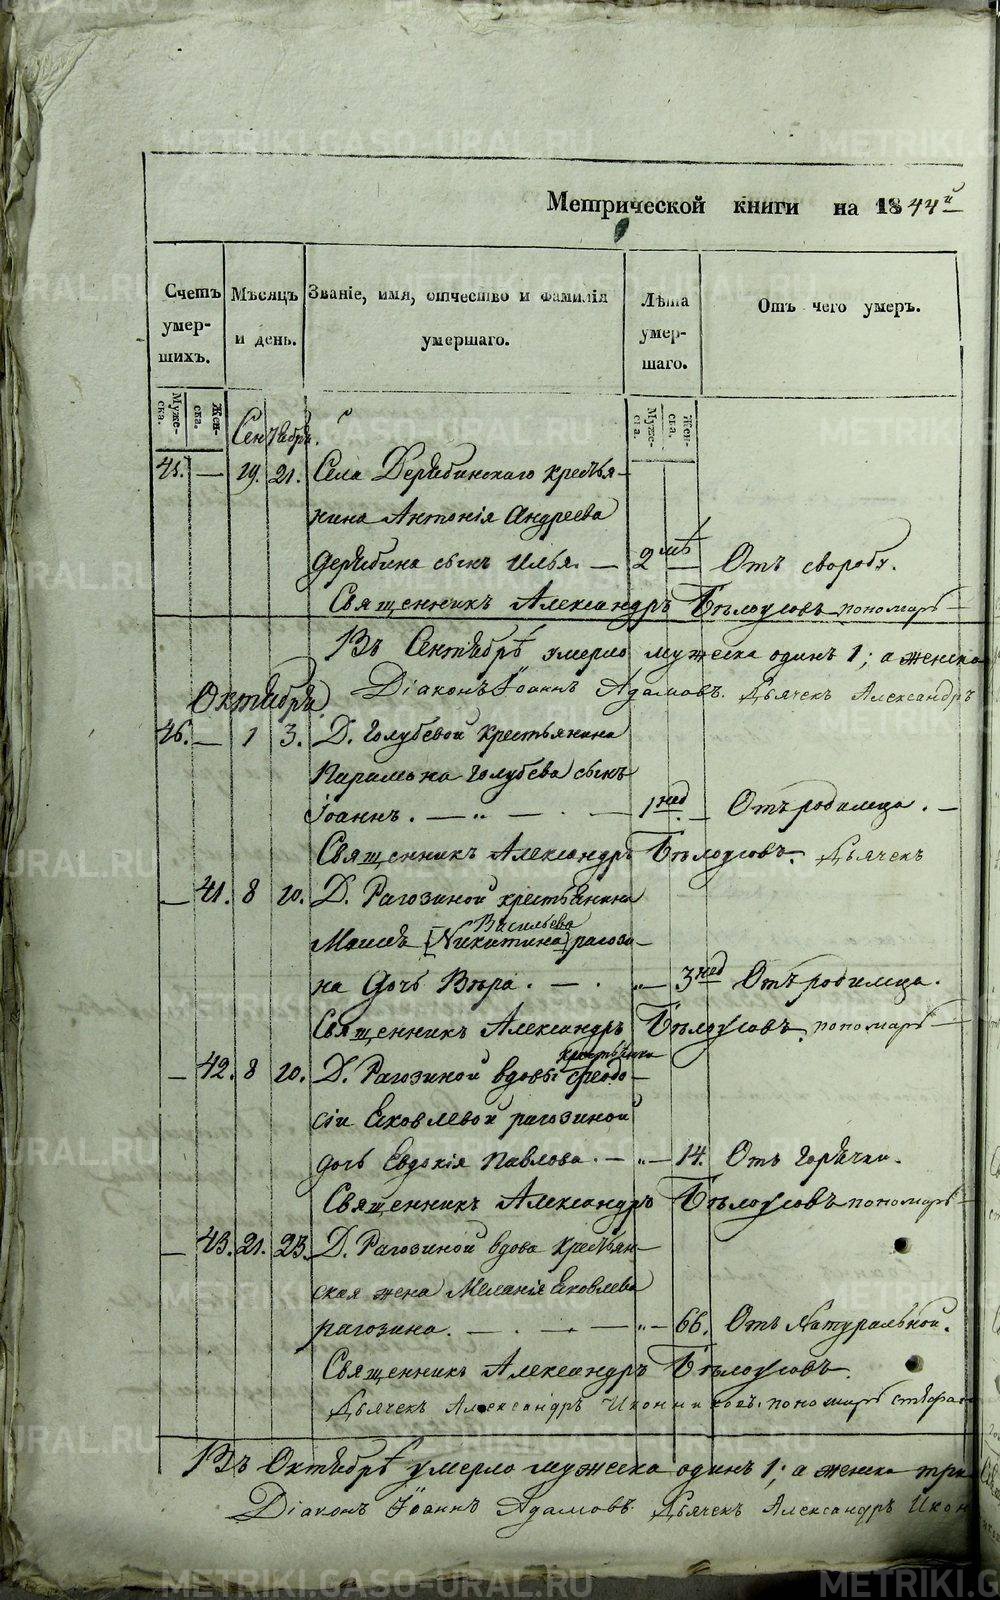 METRIKI.GASO-URAL.RU
Метрической книги на 1844й
Счетъ умер- шихъ.
Мѣсяцъ и день.
Званіе, имя, отчество и фамилія умершаго.
Лѣта умер- шаго.
Отъ чего умеръ.
Муже- ска.
Жен- ска.
Муже- ска.
Жен- ска.
Сентября.
45. — 19. 21. Села Дерябинскаго крестья-
нина Антонія Андреева
Дерябина сынъ Илья. — 2 лѣ — Отъ
Священникъ Александръ Бѣлоусовъ пономарь
Въ Сентябрѣ умерло мужеска одинъ 1; а женска
Діаконъ Іоаннъ Адамовъ. Дьячекъ Александръ
Октября
46. — 1 3. Д. Голубевой крестьянина
Парамона Голубева сынъ
Іоаннъ. — „ — . — 1 нед. — Отъ родимца. —
Священникъ Александръ Бѣлоусовъ. Дьячекъ
— 41. 8 10. Д. Рагозиной крестьянина
Васильева
[Никитина] рагози-
на дочь Вѣра. — . „ — 3 нед Отъ родимца.
Священникъ Александръ Бѣлоусовъ. пономарь —
— 42. 8 10. Д. Рагозиной вдовы Феодо-
сіи Яковлевой рагозиной
дочь Евдокія Павлова. — „ — 14. Отъ горячки.
Священникъ Александръ Бѣлоусовъ пономарь
— 43. 21. 23. Д. Рагозиной вдова крестьян-
ская жена Меланія Яковлева
рагозина. — . — . — „ — 66. Отъ Натуральной.
Священникъ Александръ Бѣлоусовъ.
Дьячекъ Александръ Иконниковъ. пономарь
Въ Октябрѣ умерло мужеска одинъ 1; а женска три
Діаконъ Іоаннъ Адамовъ. Дьячекъ Александръ Икон
METRIKI.GASO-URAL.RU